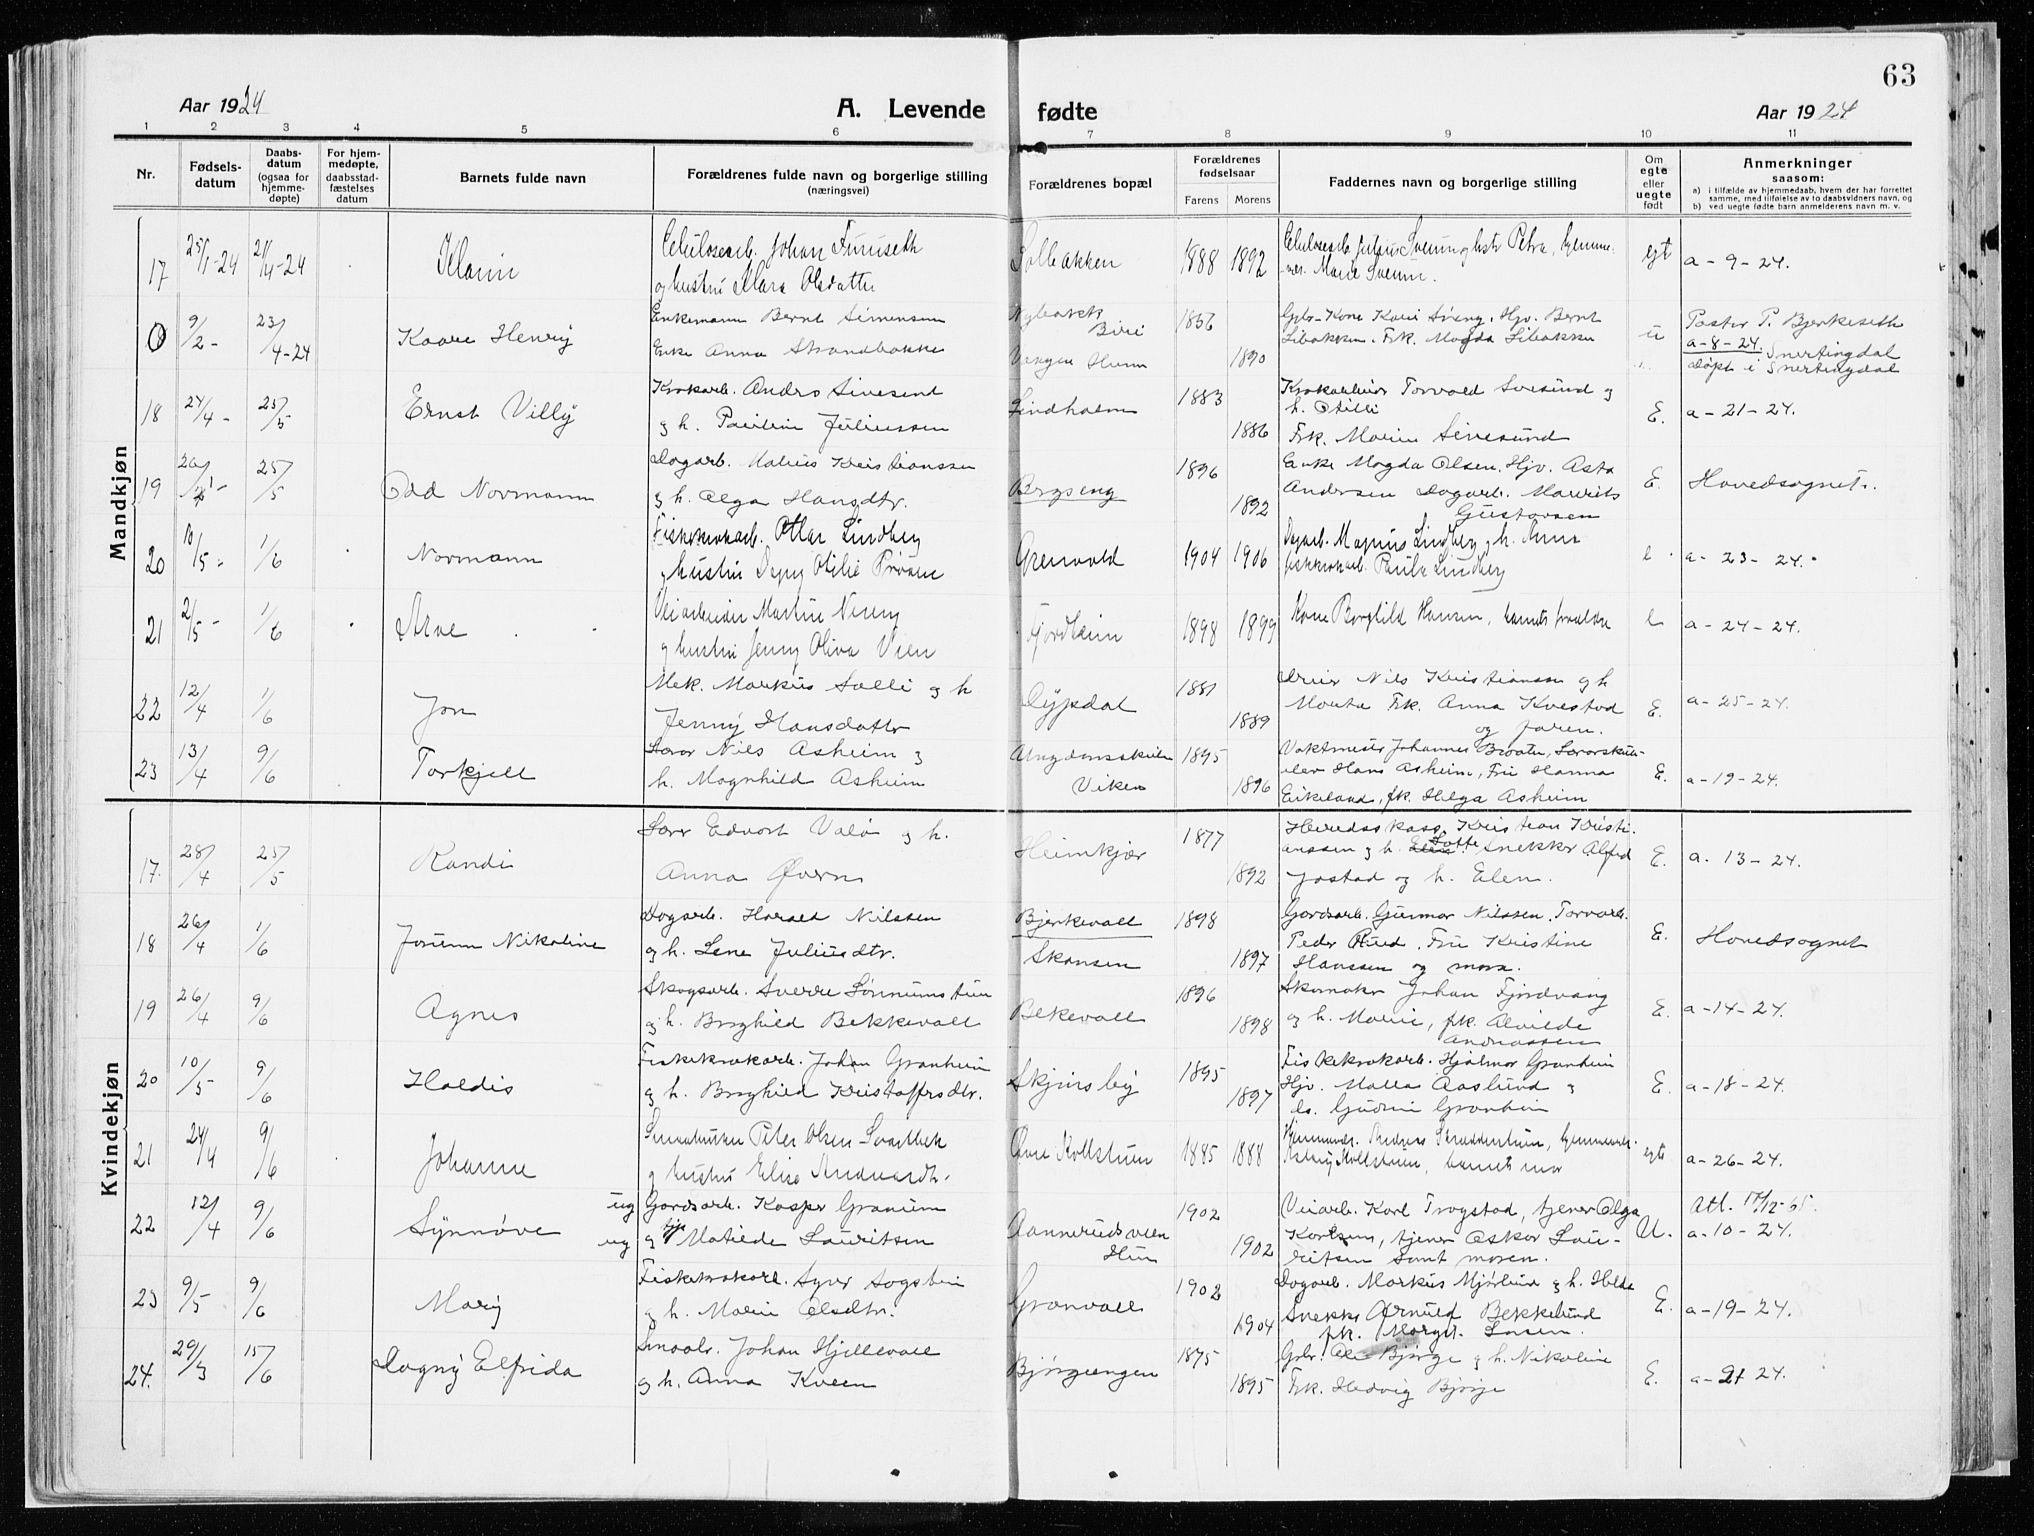 63
Aar 1924
A. Levende fødte
Aar 1924
1 2 3 4 5 6 7 8 9 10 11
Nr.
Fødsels-
datum
Daabs-
datum
(ogsaa for
hjemme-
døpte)
For hjem-
medøpte,
daabsstad-
fæstelses
datum
Barnets fulde navn
Forældrenes fulde navn og borgerlige stilling
(næringsvei)
Forældrenes bopæl
Forældrenes
fødselsaar
Farens Morens
Faddernes navn og borgerlige stilling
Om
egte
eller
uegte
født
Anmerkninger
saasom:
a) i tilfælde av hjemmedaab, hvem der har forrettet
samme, med tilføielse av to daabsvidners navn, og
b) ved uegte fødte barn anmelderens navn m. v.
Mandkjøn
17 25/1-24 21/4-24 Johan Furuseth
og hustru Olsdatter
Solbakken 1888 1892
egt a-9-24.
0 9/2- 23/4-24 Kaare Henry
Enkemann Bernt Simensen
Enke Anna Strandbakke
Biri
1890
Frk. Magda Libakken
u Pastor P. Bjerkeseth
a-8-24. Snertingdal
døpt i Snertingdal
18 24/4- 25/5 Ernst Villy
Krokarb.
og h. Juliussen
Lindholm 1883
1886
Krokarbeider Torvald og
h. Otilie
Frk.
E. a-21-24.
19 25/5 Odd Normann
Dagarb. Kristianssen
og h. Olga Hansdtr.
Bergseng 1896
1892
Enke Magda Olsen. Hjv. Asta
Andersen Dagarb. Maurits
Gustavsen
E. Hovedsognet.
20 10/5- 1/6 Normann
Fiskekrokarb. Lindberg
og hustru Otilie
Grenvold 1904 1906
Dagarb. Magnus Lindberg og h. Anna
fiskekrokarb. Paula Lindberg
e a-23-24.
21 2/5- 1/6 Arve
Veiarbeider Martin
og hustru Jenny Oliva Vien
Fjordheim 1898 1899
Kone Borghild Hansen, barnets forældre
e a-24-24.
22 12/4 1/6 Jon
Mek. Markus Solli og h
Jenny Hansdatter
Dypdal 1881
1889
Nils Kristiansen og h
Marta Frk. Anna Kvestad
og faren.
E. a-25-24.
23 13/4 9/6 Torkjell
Lærer Nils Asheim og
h. Magnhild Asheim
Viken
1895
1896
Vaktmester Johannes Braaten, Lærerskole-
elev Hans Asheim, Fru Hanna
Eikeland, frk. Helga Asheim
E. a-19-24.
Kvindekjøn
17. 28/4 25/5 Randi
Lærer Edvart Valø og h.
Anna Øvern
Heimkjær 1877
1892
Heredskass. Kristian Kristi-
anssen og h. Lotte. Snekker Alfred
Jostad og h. Elen.
E. a-13-24.
18 26/4 1/6 Jorunn Nikoline
Dagarb. Harald Nilssen
og h. Lene Juliusdtr.
Bjerkevoll
Skansen
1898
1897
Gardsarb. Gunnar Nilssen. Torvarb.
Peder Rud. Fru Kristine
Hanssen og mora.
E. Hovedsognet
19 26/4 9/6 Agnes
Skogsarb. Sverre Sønnumstuen
og h. Borghild Bekkevoll
Bekevoll 1896
1898
Skomaker Johan Fjordvang
og h. Marie, frk. Alvilde
Andreassen
E. a-14-24.
20 10/5 9/6 Haldis
Fiskekrokarb. Johan Granheim
og h. Borghild Kristoffersdtr.
1895
1897
Fiskekrokarb. Hjalmar Granheim
Hjv. Aaslund og
do. Gudrun Granheim
E. a-18-24.
21 24/4 9/6 Johanne
Smaabruker Peter Olsen-
og hustru Elise
Øvre Kollstuen 1885 1888
Kollstuen, barnets mor
egte a-26-24.
22 12/4 9/6 Synnøve
ug Gardsarb. Kasper Granum
ug og Matilde Lauritsen
Aannerudsveen
Hun
1902
1902
Veiarb. Karl Trogstad, tjener Olga
Karlsen, tjener Oskar Lau-
ritsen samt moren.
U. Att. 17/12-65.
a-10-24.
23 9/5 9/6 Mary
Fiskekrokarb.
og h. Marie Olsdtr.
Granvoll 1902
1904
Dagarb. Markus Mjørlund og h. Hilda
Snekker Arnulf Bekkelund
frk. Margit Larsen.
E. a-19-24.
24. 29/3 15/6 Dagny Elfrida
Smaabr. Johan Hjellevoll
og h. Anna Kveen
Bjørgeengen 1875
1895
Gbr. Ole Bjørge og h. Nikoline
Frk. Hedvig Bjørge
E. a-21 24.